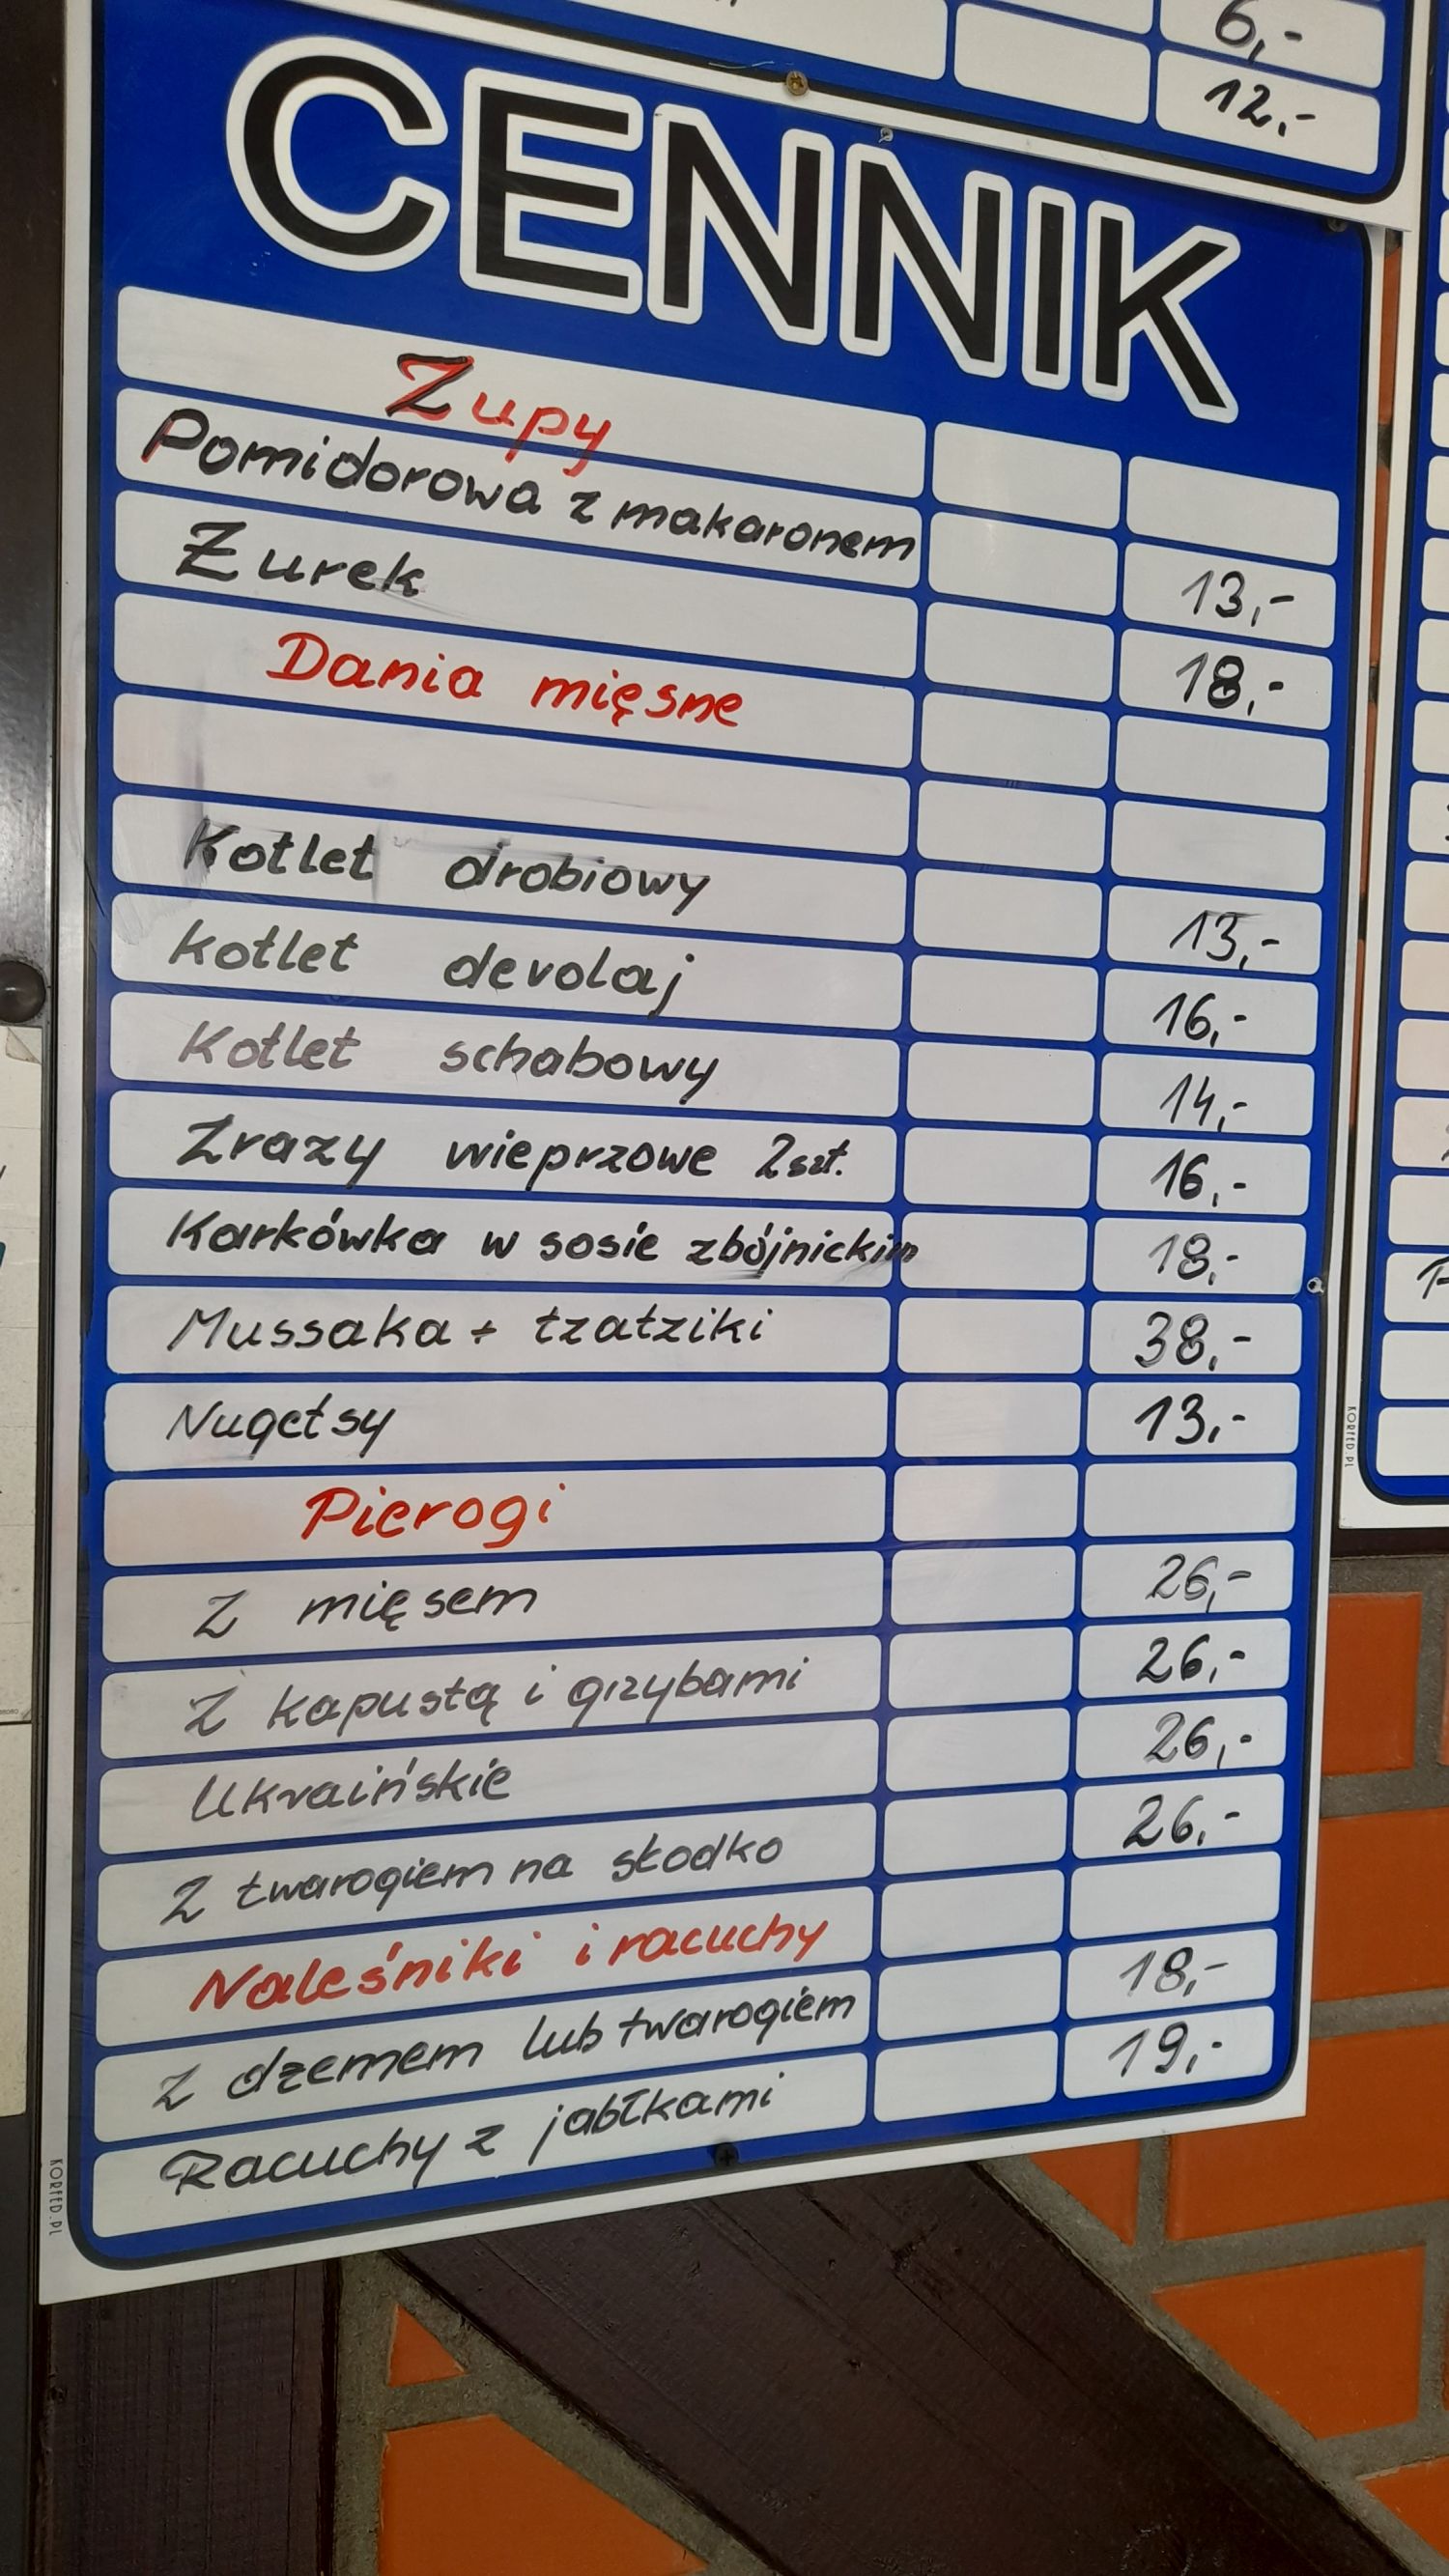 6,-
12,-
CENNIK
Zupy
Pomidorowa z makaronem 13,-
Żurek 18,-
Dania mięsne
Kotlet drobiowy 13,-
Kotlet devolaj 16,-
Kotlet schabowy 14,-
Zrazy wieprzowe 2szt. 16,-
Karkówka w sosie zbójnickim 18,-
Mussaka + tzatziki 38,-
Nugetsy 13,-
Pierogi
Z mięsem 26,-
Z kapustą i grzybami 26,-
Ukraińskie 26,-
Z twarogiem na słodko 26,-
Naleśniki i racuchy
Z dżemem lub twarogiem 18,-
Racuchy z jabłkami 19,-
KORFED.PL
KORFED.PL